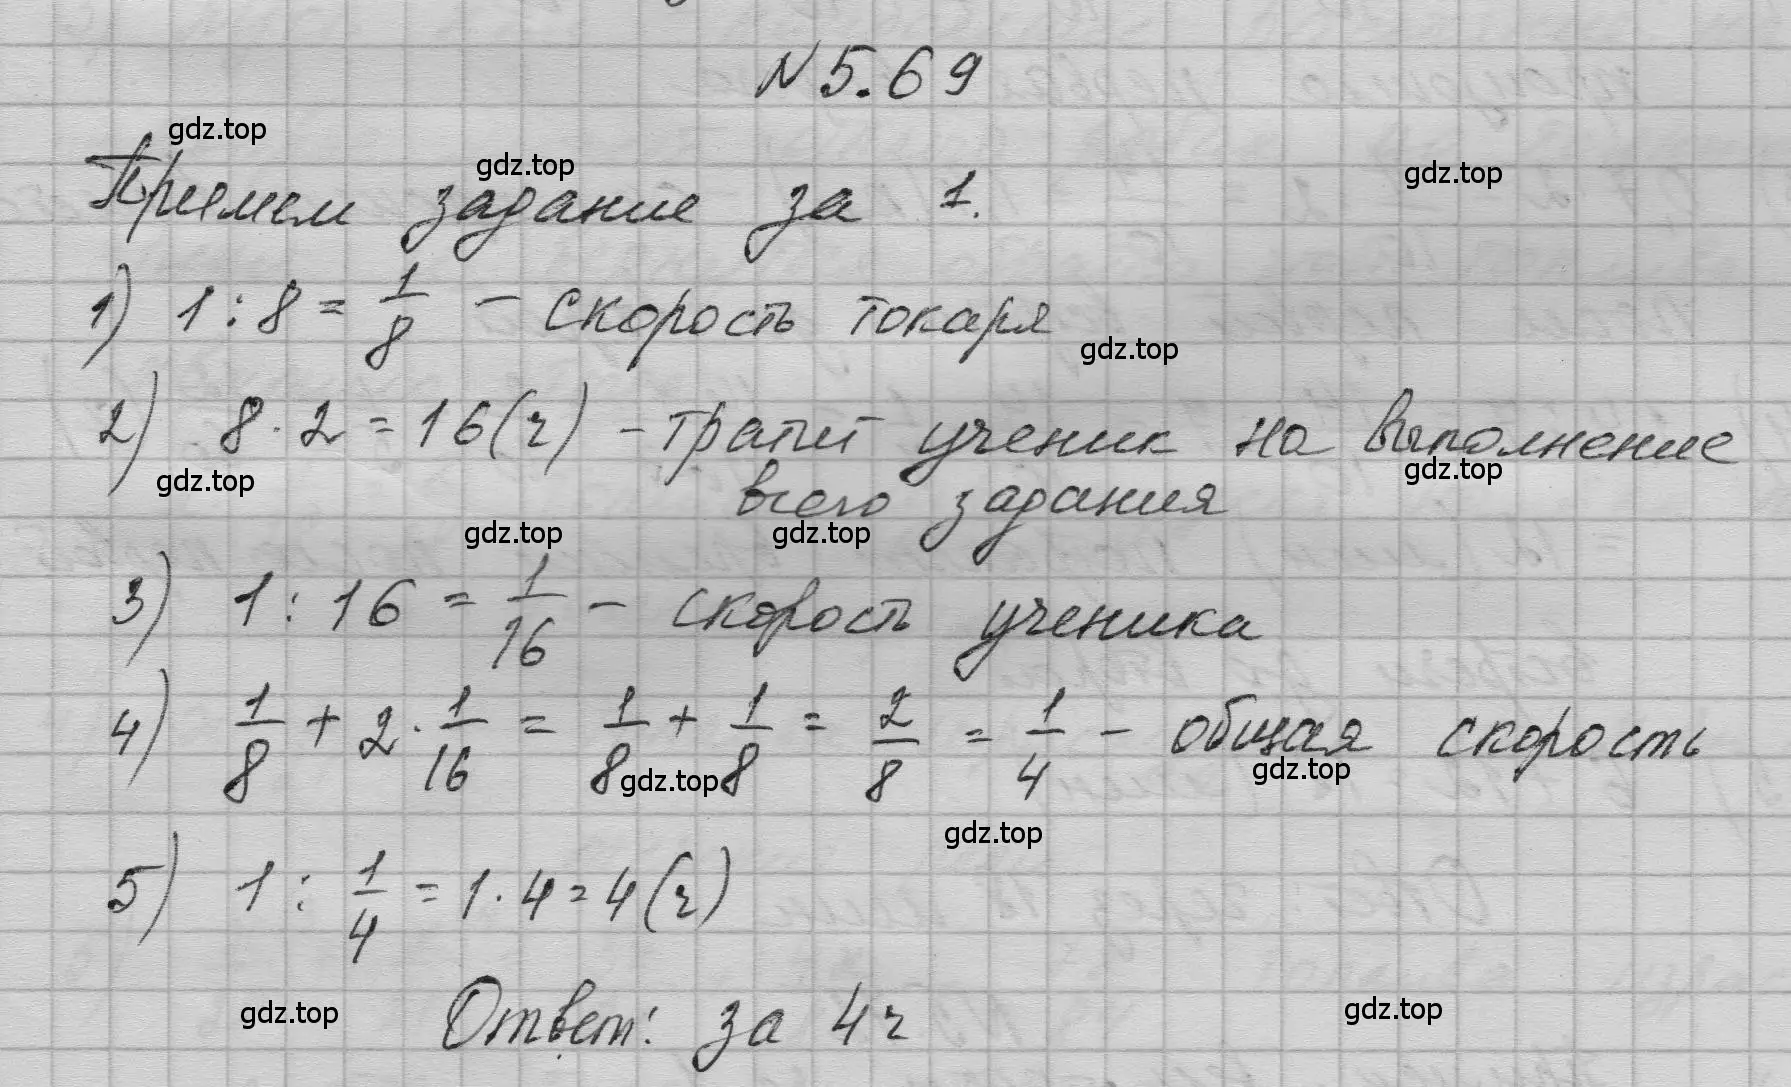 N 5.69
Примем задание за 1.
1) 1 : 8 = 1/8 – скорость токаря
2) 8 · 2 = 16 (ч) – тратит ученик на выполнение
всего задания
3) 1 : 16 = 1/16 – скорость ученика
4) 1/8 + 2 · 1/16 = 1/8 + 1/8 = 2/8 = 1/4 – общая скорость
5) 1 : 1/4 = 1 · 4 = 4 (ч)
Ответ: за 4 ч
gdz.top
gdz.top
gdz.top
gdz.top
gdz.top
gdz.top
gdz.top
gdz.top
gdz.top
gdz.top
gdz.top
gdz.top
gdz.top